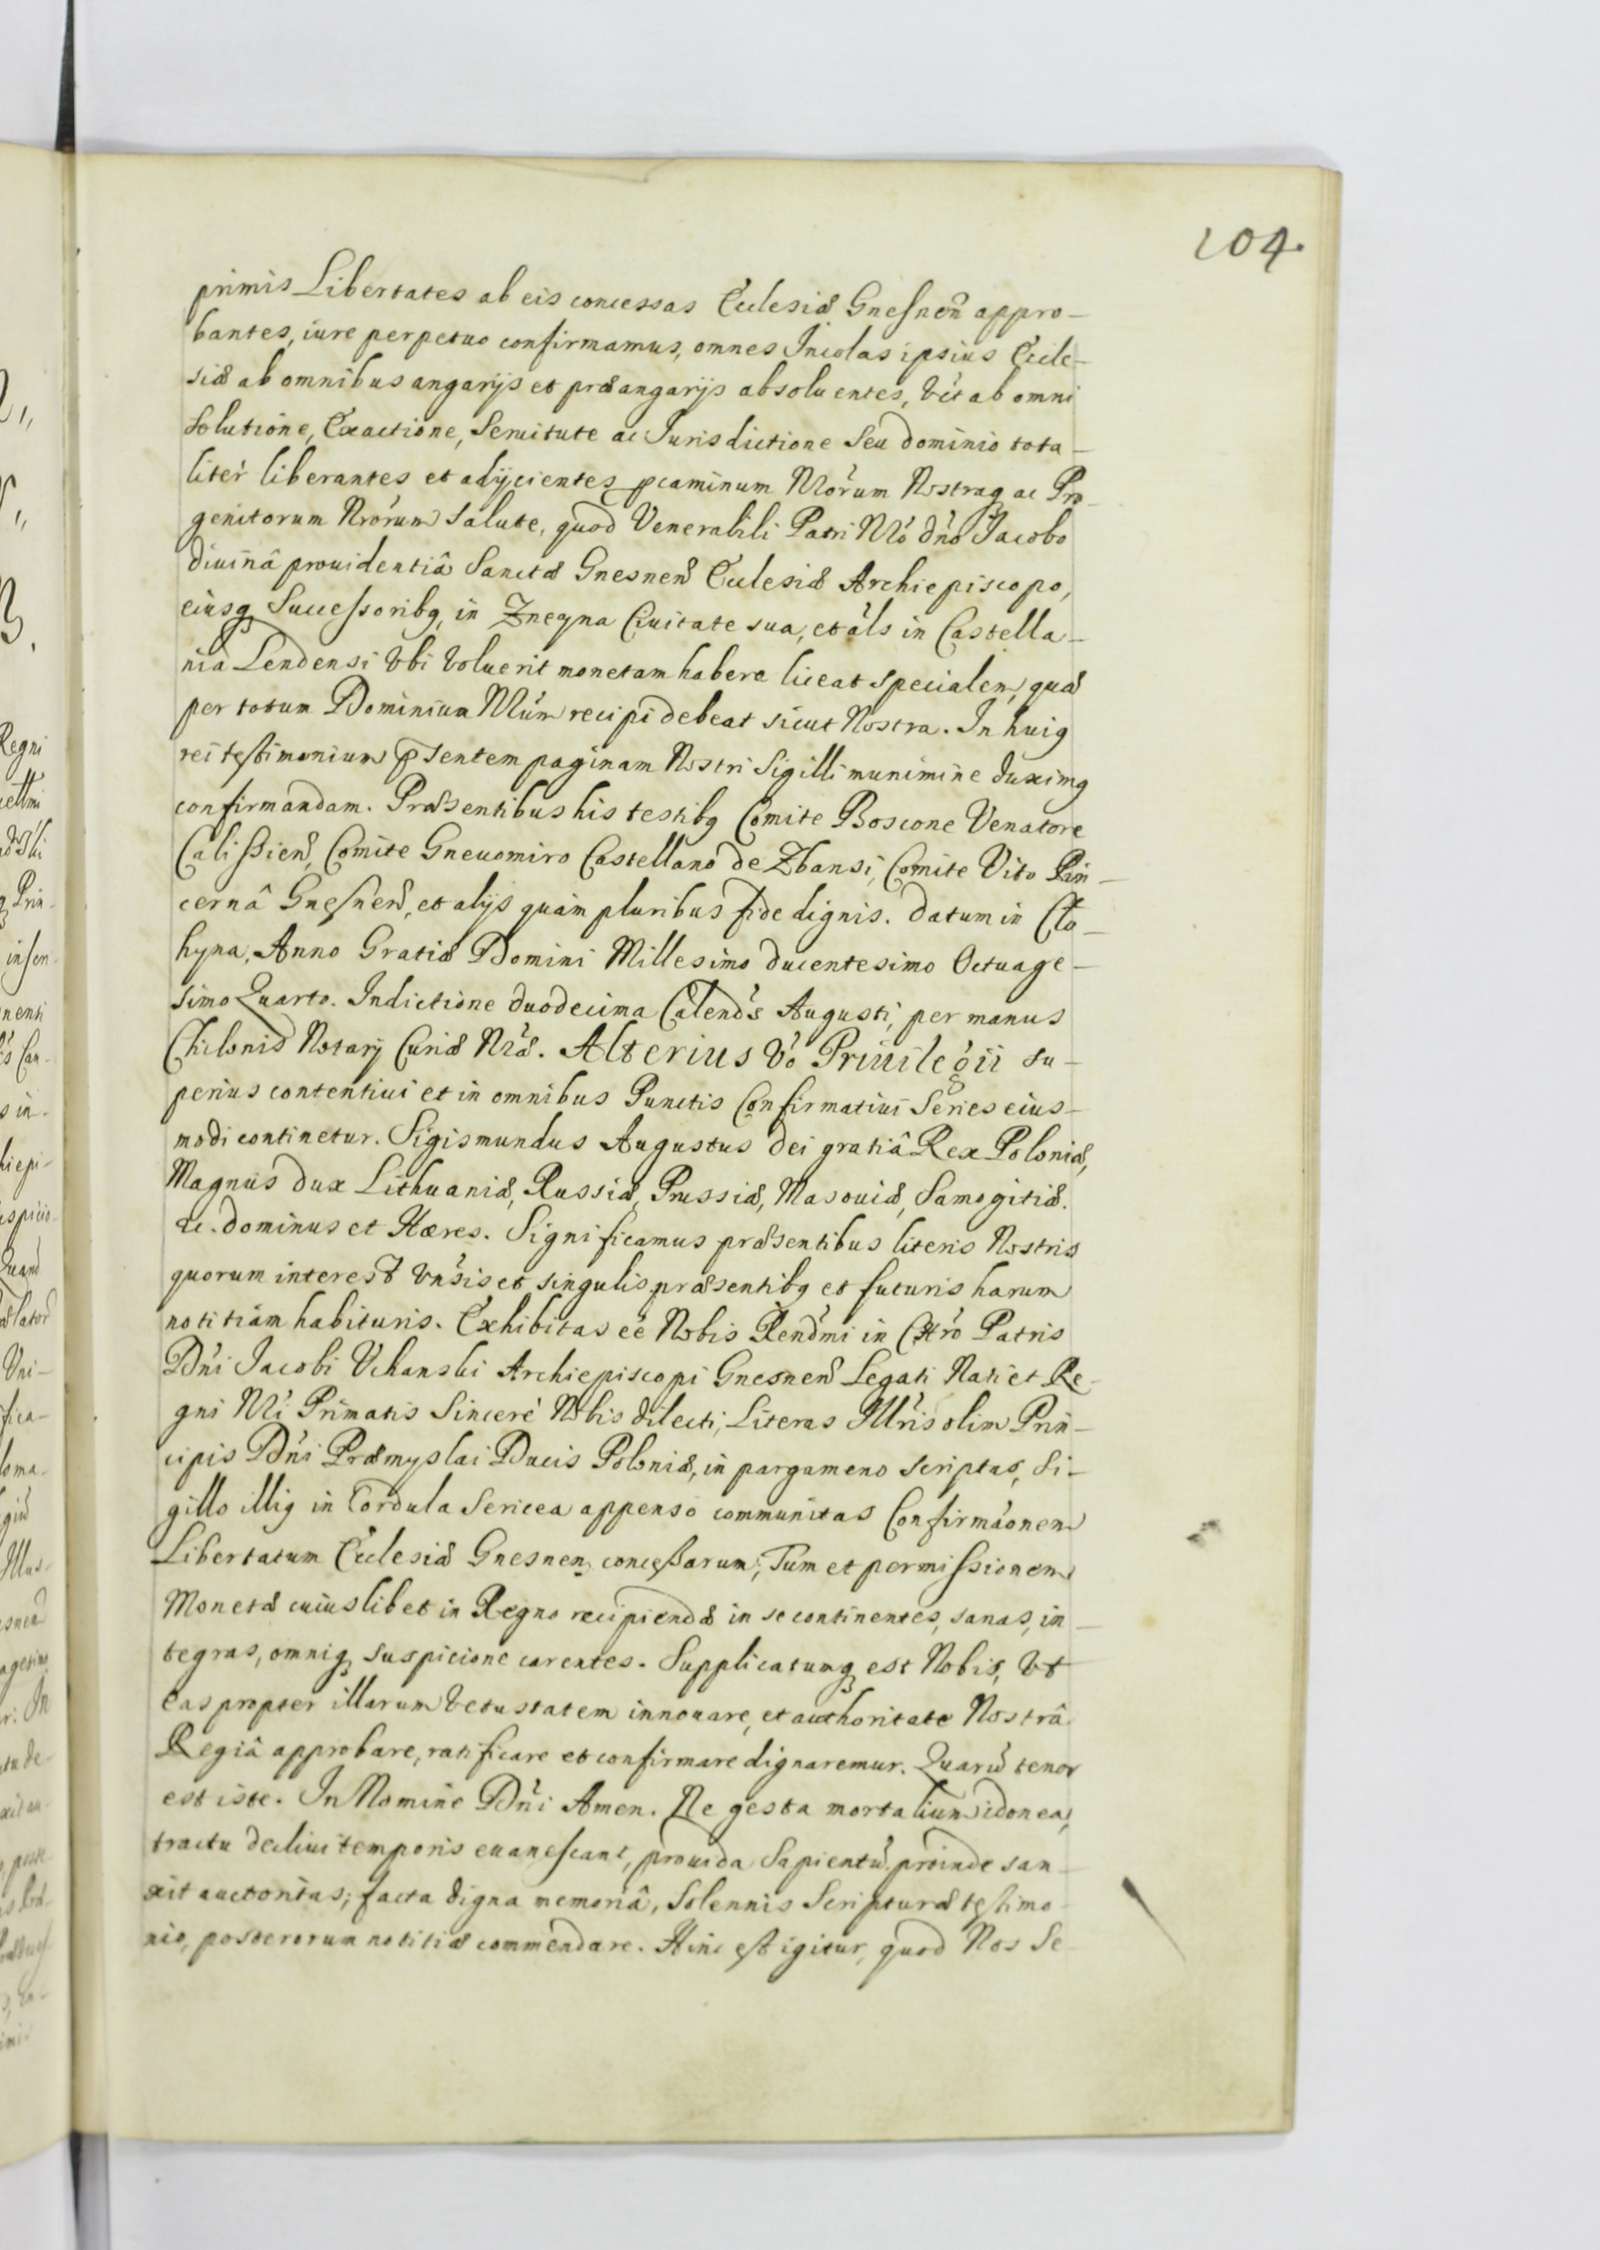 104.
primis Libertates ab eis concessas Ecclesiæ Gnesnen̄ appro-
bantes, iure perpetuo confirmamus, omnes Incolas ipsius Eccle-
siæ ab omnibus angarijs et præangarijs absoluentes, Vći ab omni
solutione, Exactione, Seruitute ac Iurisdictione Seu dominio tota-
litèr liberantes et adijcientes pcaminum Nrórum Nostraq ac Pro
genitorum Nrórum salute, quod Venerabili Patri Nró dńo Jacobo
diuinâ prouidentiâ Sanctæ Gnesnen̄ Ecclesiæ Archiepiscopo,
eiusq Successoribq, in Znegna Ciuitate sua, et áls in Castella-
nia Lendensi Vbi Voluerit monetam habere liceat specialem, quæ
per totum Dominium Nrúm recipi debeat sicut Nostra. In huiq
rei testimonium p̄sentem paginam Nostri Sigilli munimine duximq
confirmandam. Præsentibus his testibq Comite Boscone Venatore
Calissien̄, Comite Gneuomiro Castellano de Zbansi, Comite Vito Pin-
cernâ Gnesnen̄, et alijs quàm pluribus fide dignis. datum in Clo-
hyna, Anno Gratiæ Domini Millesimo ducentesimo Octuage-
simo Quarto. Indictione duodecima Calend́s Augusti, per manus
Chilonis Notarij Curiæ Nrǽ. Alterius Vó Priuilegii su-
perius contentiui et in omnibus Punctis Confirmatiui Series eius-
modi continetur. Sigismundus Augustus dei gratiâ Rex Poloniæ,
Magnus dux Lithuaniæ, Russiæ, Prussiæ, Masouiæ, Samogitiæ.
ac. dominus et Hæres. Significamus præsentibus literis Nostris
quorum interest Vńsis et singulis præsentibq et futuris harum
notitiam habituris. Exhibitas eé Nobis Rend́mi in Chró Patris
Dńi Jacobi Vchanski Archiepiscopi Gnesnen̄ Legati Nati et Re-
gni Nrí Primatis Sincerè Nobis dilecti, Literas Illŕis olim Prin-
cipis Dńi Præmyslai Ducis Poloniæ, in pargameno scriptas, Si-
gillo illiq in Cordula Sericea appenso communitas Confirmáonem
Libertatum Ecclesiæ Gnesnen concessarum; Tum et permissionem
Monetæ cuiuslibet in Regno recipiendæ in se continentes, sanas, in-
tegras, omniq suspicione carentes. Supplicatumq est Nobis, Vt
eas propter illarum Vetustatem innouare, et authoritate Nostrâ
Regiâ approbare, ratificare et confirmare dignaremur. Quarū tenor
est iste. In Nomine Dńi Amen. Ne gesta mortalium idonea,
tractu decliui temporis euanescant, prouida Sapientū proinde san-
xit auctoritas; facta digna memoriâ, Solennis Scripturæ testimo-
nio, posterorum notitiæ commendare. Hinc est igitur, quod Nos Se-